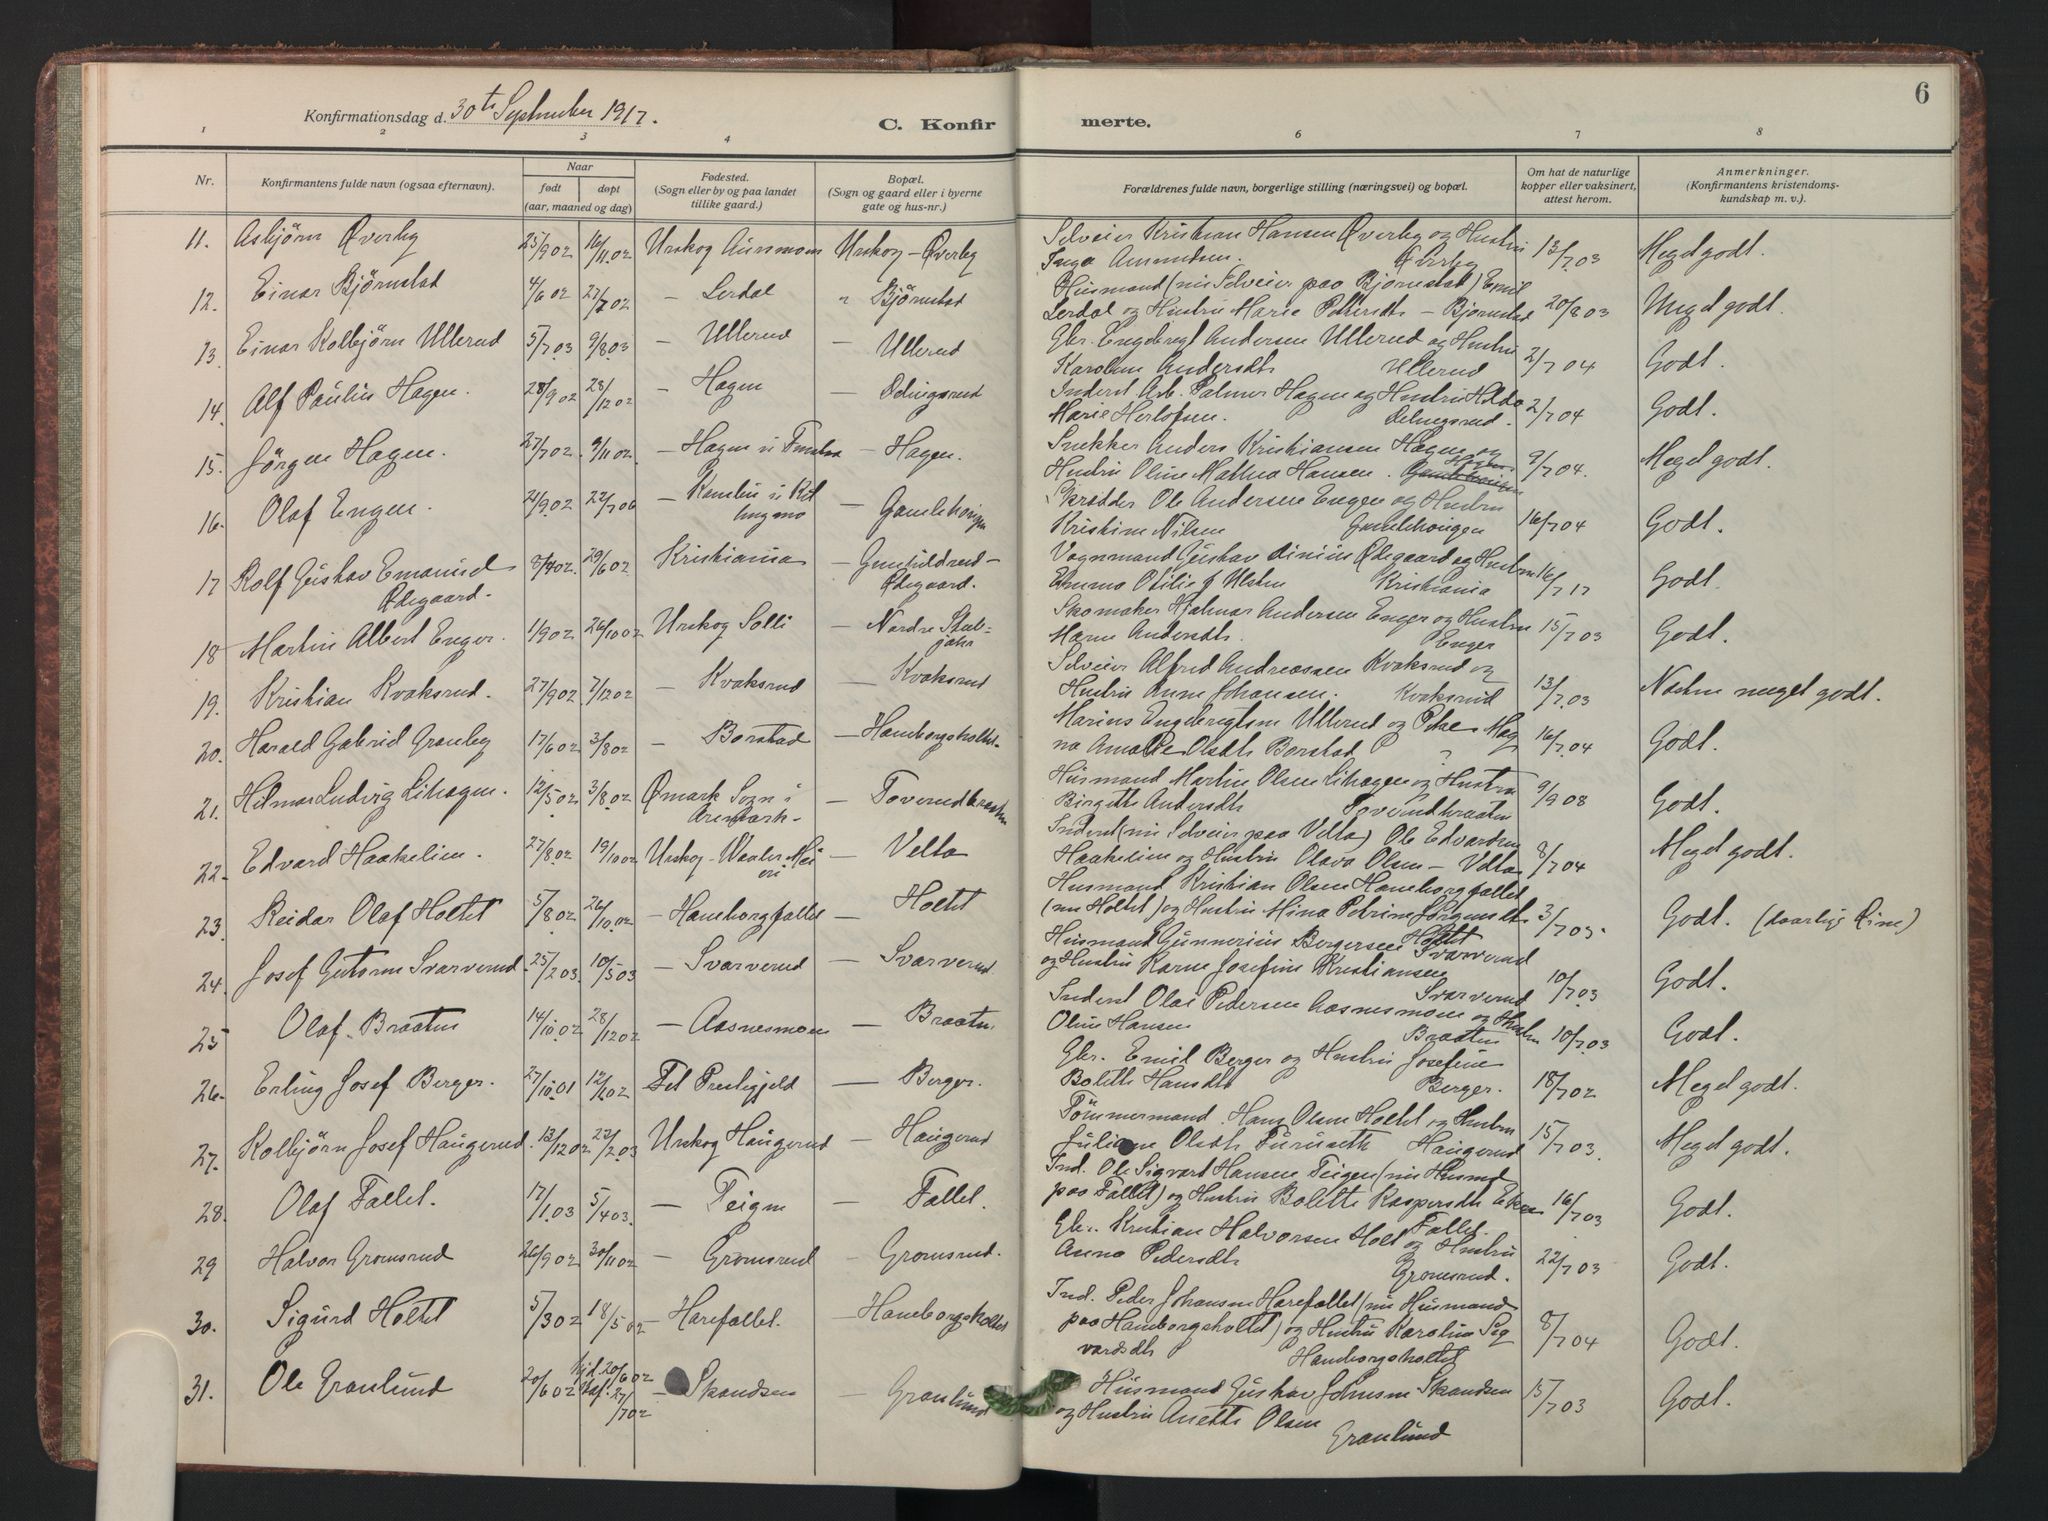 6
Konfirmationsdag d. 30te September 1917.
C. Konfirmerte.
1 2 3 4 6 7 8
Nr. Konfirmantens fulde navn (ogsaa efternavn). Naar født døpt (aar, maaned og dag) Fødested. (Sogn eller by og paa landet tillike gaard.) Bopæl. (Sogn og gaard eller i byerne gate og hus-nr.) Forældrenes fulde navn, borgerlige stilling (næringsvei) og bopæl. Om hat de naturlige kopper eller vaksinert, attest herom. Anmerkninger. (Konfirmantens kristendomskundskap m. v.).
11. Asbjörn Øverby 25/9 02 16/11 02 Urskog Aursmoen Urskog - Øverby Selveier Kristian Hansen Øverby og Hustru 13/7 03 Meget godt.
Inga Amundsen. Øverby
12. Einar Bjørnstad 4/6 02 27/7 02 — Lerdal " Bjørnstad Husmand (nu Selveier paa Bjørnstad) Emil 20/8 03 Meget godt.
Lerdal og Hustru Marie Pettersdt. — Bjørnstad
13. Einar Kolbjörn Ullerud 5/7 03 9/8 03 — Ullerud — Ullerud Gbr. Engebregt Andersen Ullerud og Hustru 2/7 04 Godt.
Karoline Andersdt. Ullerud
14. Alf Paulin Hagen. 28/9 02 28/12 02 — Hagen — Ødingsrud Inderst Arb. Palmer Hagen og Hustru Hilda 2/7 04 Godt.
Marie Herlofsen.
15. Jörgen Hagen. 27/7 02 9/11 02 — Hagen — Hagen. Snekker Anders Kristiansen Hagen og 9/7 04. Meget godt.
Hustru Oline Mathea Hansen. Hagen
16. Olaf Engen. 21/9 02 22/7 06 — — Gamlehougen Skrædder Ole Andersen Engen og Hustru 16/7 04 Godt.
Kristine Nilsen Gamlehougen
17 Rolf Gustav Emanuel Ødegaard. 8/4 02. 29/6 02 Kristiania — Gunhildrud - Ødegaard. Vognmand Gustav Ødegaard og Hustru 16/7 17 Godt.
Emma Otilie Kristiania
18 Martin Albert Enger. 1/9 02 26/10 02 Urskog Solli — Nordre Skomaker Hjalmar Andersen Enger og Hustru 15/7 03 Godt.
Maren Andersdt. Enger
19. Kristian Kvaksrud. 27/9 02 7/12 02 — Kvaksrud — Kvaksrud Selveier Alfred Andreassen Kvaksrud og 13/7 03 Næsten meget godt.
Hustru Anne Johansen. Kvaksrud
20. Harald Gabriel Granby 17/6 02 3/8 02 — Borstad — Haneborgsholtet. Marius Engebregtsen Ullerud og Pike Mag 16/7 04 Godt.
na Amalie Olsdt. Borstad ?
21. Hilmar Ludvig Lihagen. 12/5 02 3/8 02 Ømark Sogn i Aremark — — Toverudbraaten Husmand Martin Olsen Lihagen og Hustru 9/9 08 Godt.
Birgitte Andersdt. Toverudbraaten
22. Edvard Haakelien. 27/8 02 19/10 02 Urskog - Meieri — Velta Inderst (nu Selveier paa Velta) Ole Edvardsen 8/7 04 Meget godt.
Haakelien og Hustru Olava Olsen — Velta
23. Reidar Olaf Holtet 5/8 02 26/10 02 — Haneborgfallet — Holtet Husmand Kristian Olsen Haneborgfallet 3/7 03. Godt. (daarlig Evne)
(nu Holtet) og Hustru Mina Petrine Jörgensdt. Holtet
24. Josef Gutorm Svarverud 25/2 03. 10/5 03 — Svarverud — Svarverud. Husmand Gunnerius Bergersen Svarverud 10/7 03 Godt.
og Hustru Karen Josefine Kristiansen Svarverud
25 Olaf Braaten 14/10 02 28/12 02 — Aasnesmoen — Braaten. Inderst Olai Pedersen Aasnesmoen og Hustru 10/7 03 Godt.
Oline Hansen Braaten
26. Erling Josef Berger. 27/10 01 12/1 02 Fet Prestegjeld — Berger. Gbr. Emil Berger og Hustru Josefine 18/7 02 Meget godt.
Bolette Hansdt Berger.
27. Kolbjörn Josef Haugerud. 13/12 02 22/2 03 Urskog Haugerud — Haugerud Tömmermand Hans Olsen Holtet og Hustru 15/7 03. Meget godt.
Juliane Olsdt. Furuseth Haugerud
28. Olaf Fallet. 17/1 03 5/4 03. — Teigen — Fallet. Ind. Ole Sigvart Hansen Teigen (nu Husmd 16/7 03 Godt.
paa Fallet) og Hustru Bolette Kaspersdt. Fallet.
29 Halvor Gromsrud 26/9 02 30/11 02 — Gromsrud — Gromsrud. Gbr. Kristian Halvorsen Holt og Hustru 22/7 03 Godt.
Anna Pedersdt. Gromsrud.
30. Sigurd Holtet 5/3 02 18/5 02 — Harefallet. — Haneborgsholtet Ind. Peder Johansen Harefallet (nu Husmand 8/7 04 Godt.
paa Haneborgsholtet) og Hustru Karoline Sig
vardsdt. Haneborgsholtet
31. Ole Granlund 20/6 02 hjd. 20/6 02 Stadf. 27/7 02 — Skandsen — Granlund Husmand Gustav Johnsen Skandsen 15/7 03 Godt.
og Hustru Anette Olsen Granlund